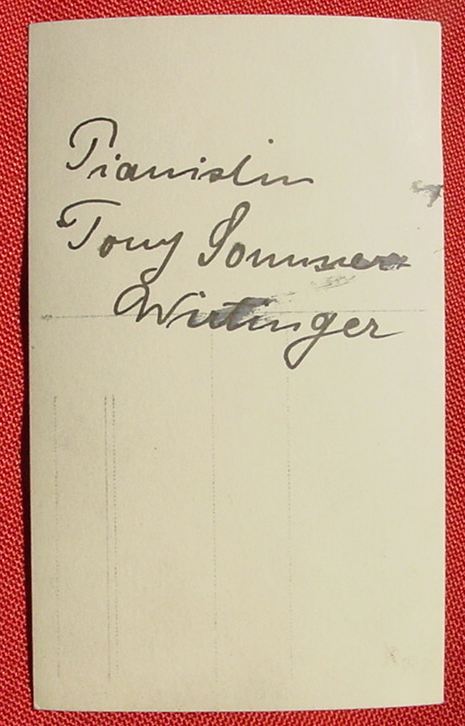 Pianistin
Tony Sommer
Wirtinger